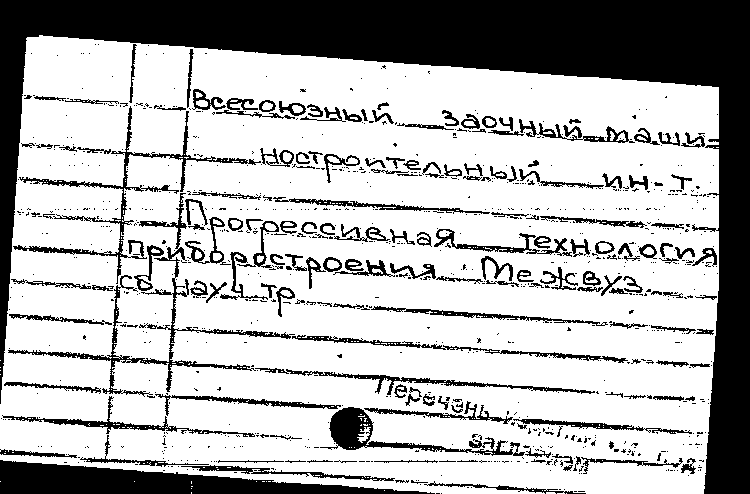 Всесоюзный заочный маши-
ностроительный ин-т.
Прогрессивная технология
приборостроения. Межвуз.
сб. науч. тр
Перечень см. под
заглавием